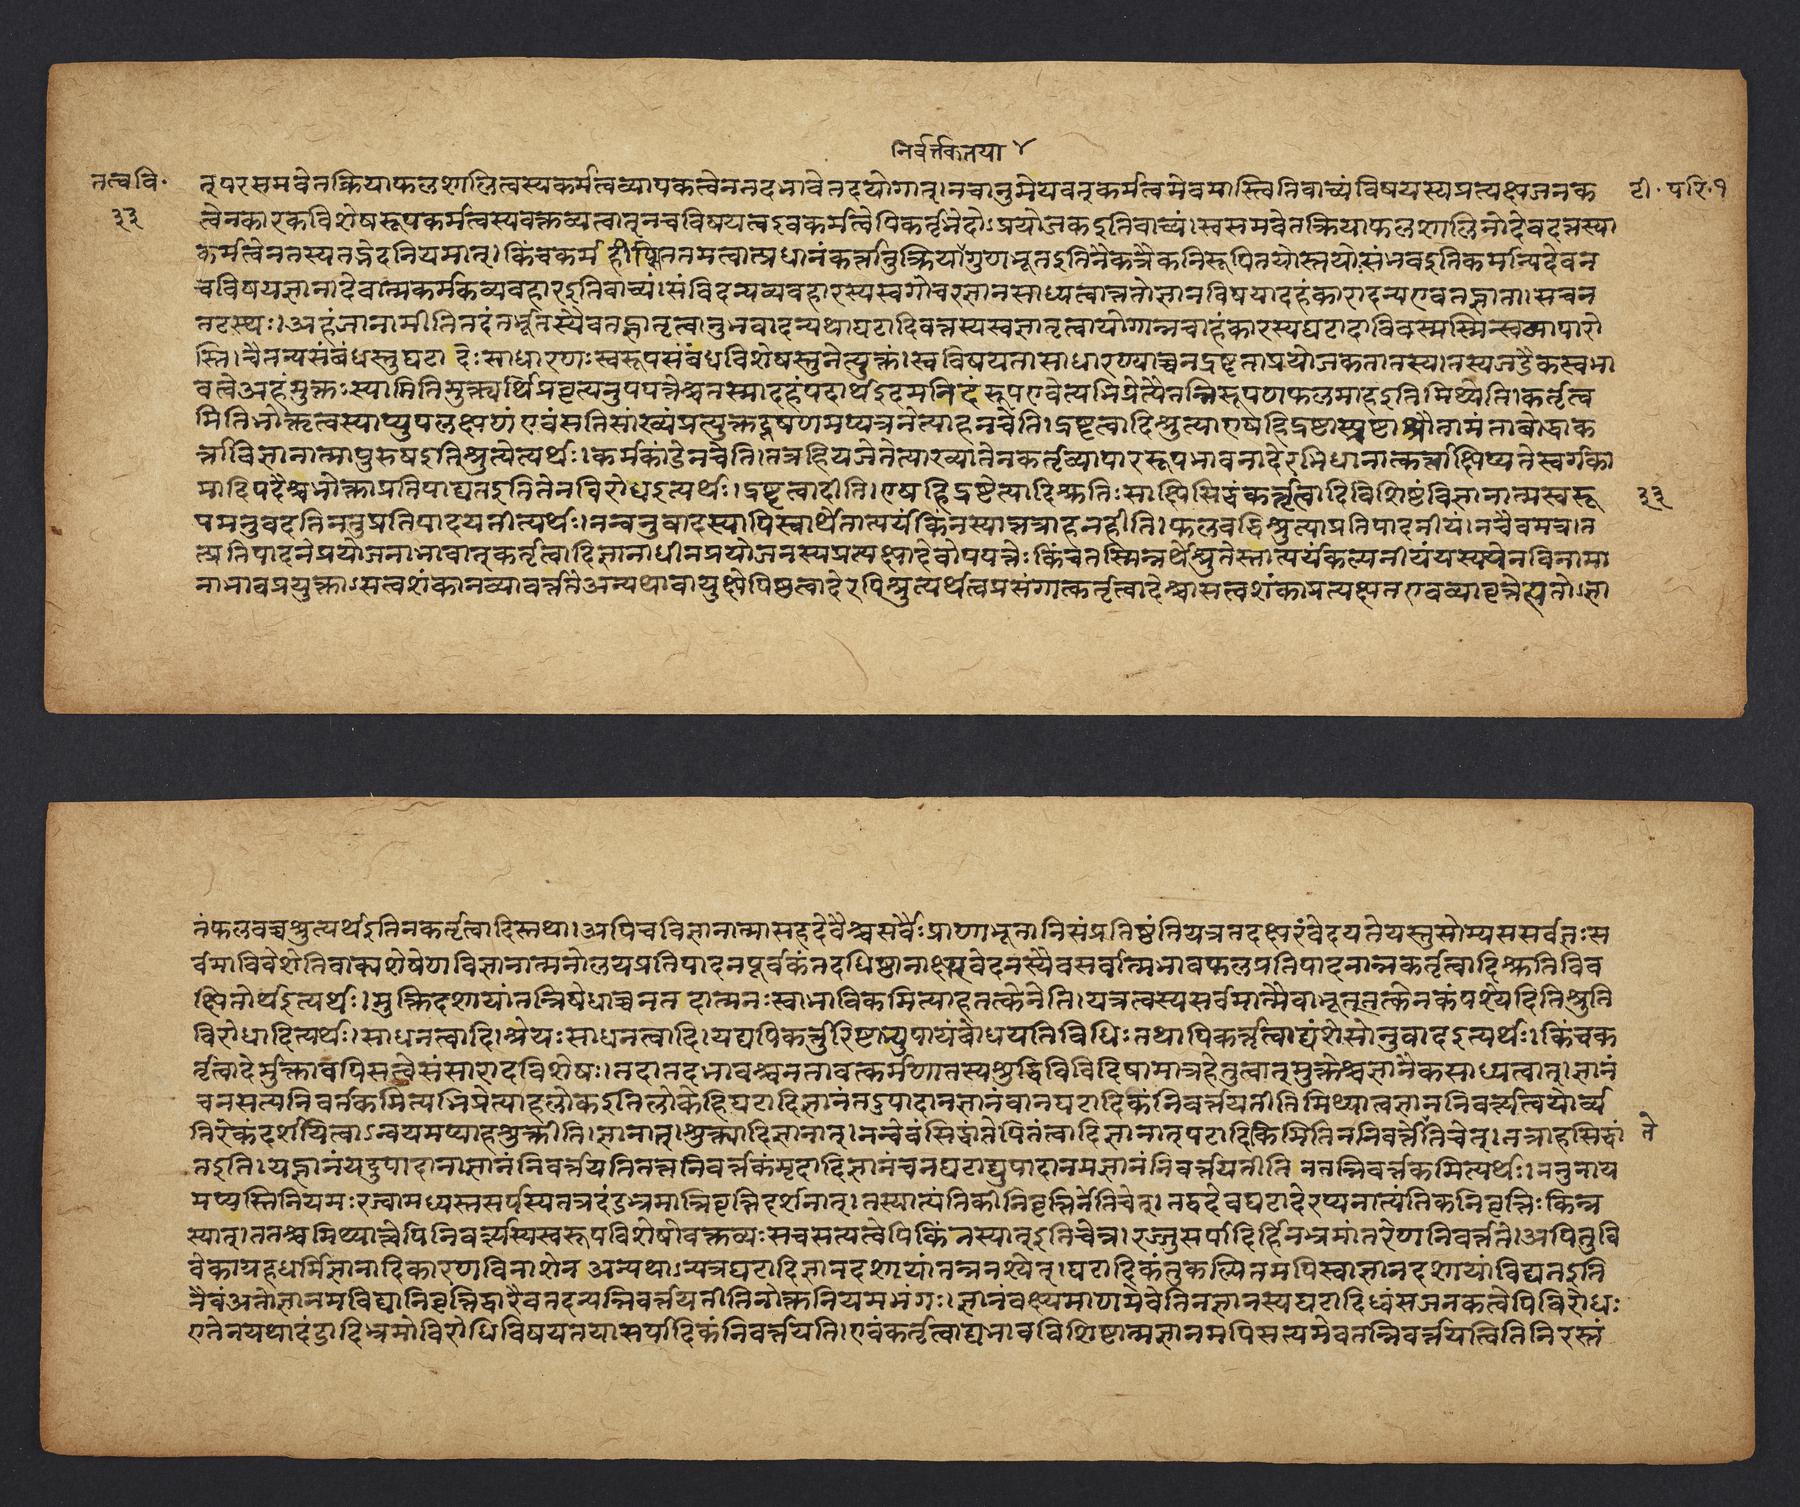 निर्वर्त्तकतया ४
तत्ववि॰
३३
टी॰ परि॰१
त्परसमवेतक्रियाफलशालित्वस्यकर्मत्वव्यापकत्वेनतदभावेतदयोगात्।नचानुमेयवत्कर्मत्वमेवमास्त्वितिवाच्यंविषयस्यप्रत्यक्षजनक
त्वेनकारकविशेषरूपकर्मत्वस्यवक्तव्यत्वात्नचविषयत्वएवकर्मत्वेपिकर्तृभेदोऽप्रयोजकइतिवाच्यं।स्वसमवेतक्रियाफलशालिनोदेवदत्तस्या
कर्मत्वेनतस्यतद्भेदनियमात्।किंचकर्म हीप्सिततमत्वात्प्रधानंकर्त्तातुक्रियायांगुणभूतइतिनैकत्रैकनिरूपितयोस्तयोःसंभवइतिकर्मान्यदेवन
चविषयज्ञानादेवात्मकर्मकव्यवहारइतिवाच्यं।संविदन्यव्यवहारस्यस्वगोचरज्ञानसाध्यत्वात्ततोज्ञानविषयादहंकारादन्यएवतज्ज्ञाता।सचन
तटस्थः।अहंजानामीतितदंतर्भूतस्यैवतज्ज्ञातृत्वानुभवादन्यथाघटादिवत्तस्यस्वज्ञातृत्वायोगान्नचाहंकारस्यघटादाविवस्मस्मिन्स्वव्यापारो
स्ति।चैतन्यसंबंधस्तुघटा देःसाधारणःस्वरूपसंबंधविशेषस्तुनेत्युक्तं।स्वविषयतासाधारण्याच्चनद्रष्टृताप्रयोजकतातस्य।तस्यजडैकस्वभा
वत्वेअहंमुक्तःस्यामितिमुक्त्यर्थिप्रवृत्यनुपपत्तैश्चतस्मादहंपदार्थइदमनिदं रूपएवेत्यभिप्रेत्यैतन्निरूपणफलमाहइतिमिथ्येति।कर्तृत्व
मितिभोक्तृत्वस्याप्युपलक्षणं एवंसतिसांख्यंप्रत्युक्तदूषणमप्यत्रनेत्याहनचेति।द्रष्टृत्वादिश्रुत्याएषहिद्रष्टास्प्रष्टाश्रोतामंताबोद्धाक
र्त्ताविज्ञानात्मापुरुषइतिश्रुत्येत्यर्थः।कर्मकांडेनचेति।तत्रहियजेतेत्याख्यातेनकर्तृव्यापाररूपभावनादेरभिधानात्कर्त्ताक्षिप्यतेस्वर्गका
मादिपदैश्चभोक्ताप्रतिपाद्यतइतितेनविरोधइत्यर्थः।द्रष्टृत्वादीति।एषहिद्रष्टेत्यादिश्रुतिःसाक्षिसिद्धंकर्तृत्वादिविशिष्टंविज्ञानात्मस्वरू
३३
पमनुवदतिनतुप्रतिपादयतीत्यर्थः।नन्वनुवादस्यापिस्वार्थेतात्पर्यंकिंनस्यात्तत्राहनहीति।फलवद्धिश्रुत्याप्रतिपादनीयं।नचैवमत्र।त
त्प्रतिपादनेप्रयोजनाभावात्कर्तृत्वादिज्ञानाधीनप्रयोजनस्यप्रत्यक्षादेवोपपत्तेः।किंचतस्मिन्नर्थेश्रुतेस्तात्पर्यंकल्पनीयंयस्ययेनविनामा
नाभावप्रयुक्ताऽसत्वशंकानव्यावर्त्ततेअन्यथावायुक्षेपिष्ठत्वादेरपिश्रुत्यर्थत्वप्रसंगात्कर्तृत्वादेश्चासत्वशंकाप्रत्यक्षतएवव्यावृत्तेत्यतोऽज्ञा
तंफलवच्चश्रुत्यर्थइतिनकर्तृत्वादिस्तथा।अपिचविज्ञानात्मासहदेवैश्चसर्वैःप्राणाभूतानिसंप्रतिष्ठंतियत्रतदक्षरंवेदयतेयस्तुसोम्यससर्वज्ञःस
र्वमाविवेशेतिवाक्यशेषेणविज्ञानात्मनोलयप्रतिपादनपूर्वकंतदधिष्ठानाक्षरवेदनस्यैवसर्वात्मभावफलप्रतिपादनान्नकर्तृत्वादिश्रुतिविव
क्षितोर्थइत्यर्थः।मुक्तिदशायांतन्निषेधाच्चनत दात्मनःस्वाभाविकमित्याहतत्केनेति।यत्रत्वस्यसर्वमात्मैवाभूत्तत्केनकंपश्येदितिश्रुति
विरोधादित्यर्थः।साधनत्वादि।श्रेयःसाधनत्वादि।यद्यपिकर्त्तुरिष्टाभ्युपायंबोधयतिविधिःतथापिकर्तृत्वाद्यंशेसोनुवादइत्यर्थः।किंचक
र्तृत्वादेर्मुक्तावपिसत्वेसंसारादविशेषः।तदातदभावश्चनतावत्कर्मणातस्यशुद्धिविविदिषामात्रहेतुत्वात्मुक्तेश्चज्ञानैकसाध्यत्वात्।ज्ञानं
चनसत्यनिवर्त्तकमित्यभिप्रेत्याहलोकइतिलोकेहिघटादिज्ञानंतदुपादानज्ञानंवानघटादिकंनिवर्त्तयतीतिमिथ्यात्वज्ञाननिवर्त्यत्वयोर्व्य
तिरेकंदर्शयित्वाऽन्वयमप्याहशुक्तीति।ज्ञानात्।शुक्त्यादिज्ञानात्।नन्वेवंसिद्धांतेपितंत्वादिज्ञानात्पटादिकिमितिननिवर्त्ततेतिचेत्।तत्राहसिद्धां
ते
तइति।यज्ज्ञानंयदुपादानाज्ञानंनिवर्त्तयतितत्तन्निवर्त्तकंमृदादिज्ञानंचनघटाद्युपादानमज्ञानंनिवर्त्तयतीति नतन्निवर्त्तकमित्यर्थः।ननुनाय
मप्यस्तिनियमःरज्वामध्यस्तसर्पस्यतत्रदंडभ्रमान्निवृत्तिदर्शनात्।तस्यात्यंतिकीनिवृत्तिर्नेतिचेत्।तद्वदेवघटादेरप्यनात्यंतिकनिवृत्तिःकिन्न
स्यात्।ततश्चमिथ्यात्वेपिनिवर्त्यस्यस्वरूपविशेषोवक्तव्यःसचसत्यत्वेपिकिंनस्यात्इतिचेन्न।रज्जुसर्पादिर्हिनभ्रमांतरेणनिवर्त्तते।अपितुवि
वेकाग्रहधर्मिज्ञानादिकारणविनाशेन अन्यथाऽन्यत्रघटादिज्ञानदशायांतन्ननश्येत्।घटादिकंतुकल्पितमपिस्वाज्ञानदशायांविद्यतइति
नैवंअतोज्ञानमविद्यानिवृत्तिद्वारैवतदन्यन्निवर्त्तयतीतिनोक्तनियमभंगः।ज्ञानंवक्ष्यमाणमेवेतिनज्ञानस्यघटादिध्वंसजनकत्वेपिविरोधः
एतेनयथादंडादिभ्रमोविरोधिविषयतयासर्पादिकंनिवर्त्तयति।एवंकर्तृत्वाद्यभावविशिष्टात्मज्ञानमपिसत्यमेवतन्निवर्त्तयत्वितिनिरस्तं